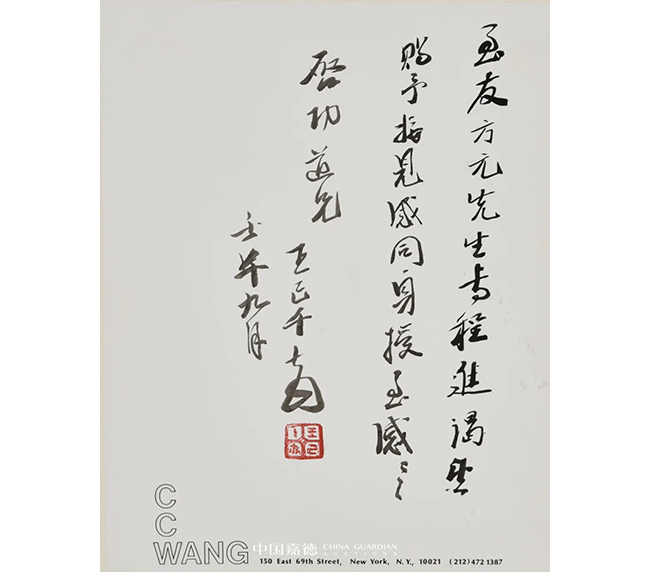 至友方元先生专程進謁
賜予接見感同身授至感々
啓功道兄
王己千
壬午九月
C
C
WANG
中国嘉德 CHINA GUARDIAN
AUCTIONS
150 East 69th Street, New York, N.Y., 10021 (212) 472 1387